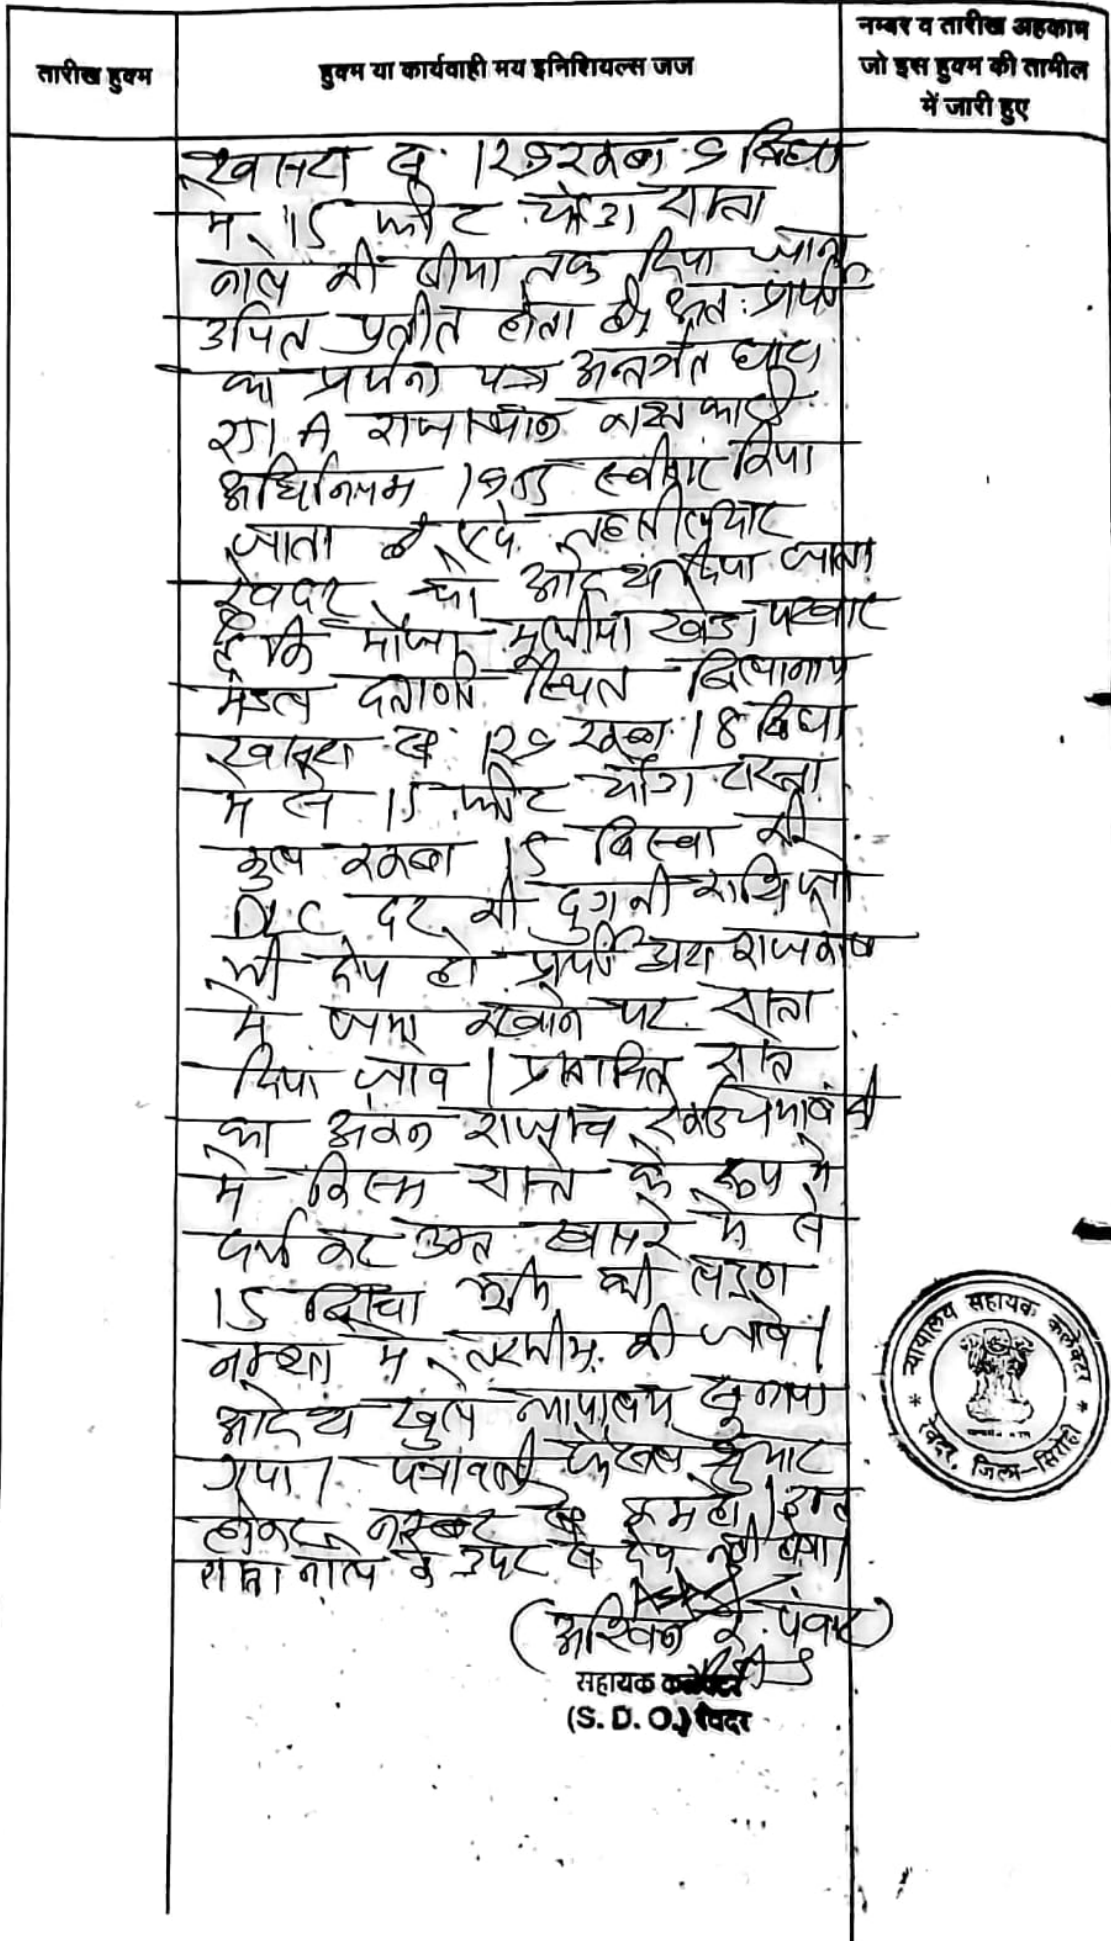 तारीख हुक्म
हुक्म या कार्यवाही मय इनिशियल्स जज
नम्बर व तारीख अहकाम
जो इस हुक्म की तामील
में जारी हुए
खसरा सं. 129 रकबा 9 बिघा
में 15 फीट चौडा रास्ता
नाले की सीमा तक दिया जाना
उचित प्रतीत होता है। अतः प्रार्थी
का प्रार्थना पत्र अन्तर्गत धारा
251 A राजस्थान काश्तकारी
अधिनियम स्वीकार किया
जाता है एवं तहसीलदार
रेवदर को आदेश दिया जाता
है कि मौजा खेडा पटवार
मंडल दताणी स्थित बिलानाम
खसरा सं. 129 रकबा 18 बिघा
में से 15 फीट चौडा रास्ता
कुल रकबा 15 बिस्वा की
DLC दर की दुगनी राशि जो
भी देय हो प्रार्थी द्वारा राजकोष
में जमा करवाने पर रास्ता
दिया जावे। प्रस्तावित रास्ते
का अंकन राजस्व रेकर्ड जमाबंदी
में किस्म रास्ते के रूप में
दर्ज कर उक्त खसरे में से
15 बिस्वा भूमि की
नक्शा में तरमीम की जावे।
आदेश खुले न्यायालय सुनाया
गया। पत्रावली फैसल शुमार
होकर नम्बर से कम हो।
रास्ता नाले के उपर से देय नहीं होगा।
( पंवार)
सहायक कलेक्टर
(S. D. O.) रेवदर
न्यायालय सहायक कलेक्टर
* रेवदर, जिला-सिरोही *